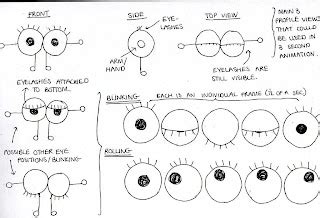 FRONT
SIDE
EYE-
LASHES
ARM/
HAND
TOP VIEW
EYELASHES ARE
STILL VISIBLE.
MAIN 3
PROFILE VIEWS
THAT COULD
BE USED IN
3 SECOND
ANIMATION.
EYELASHES ATTACHED
TO BOTTOM.
BLINKING
EACH IS AN INDIVIDUAL FRAME
OF A SEC)
POSSIBLE OTHER EYE
POSITIONS/BLINKING
ROLLING